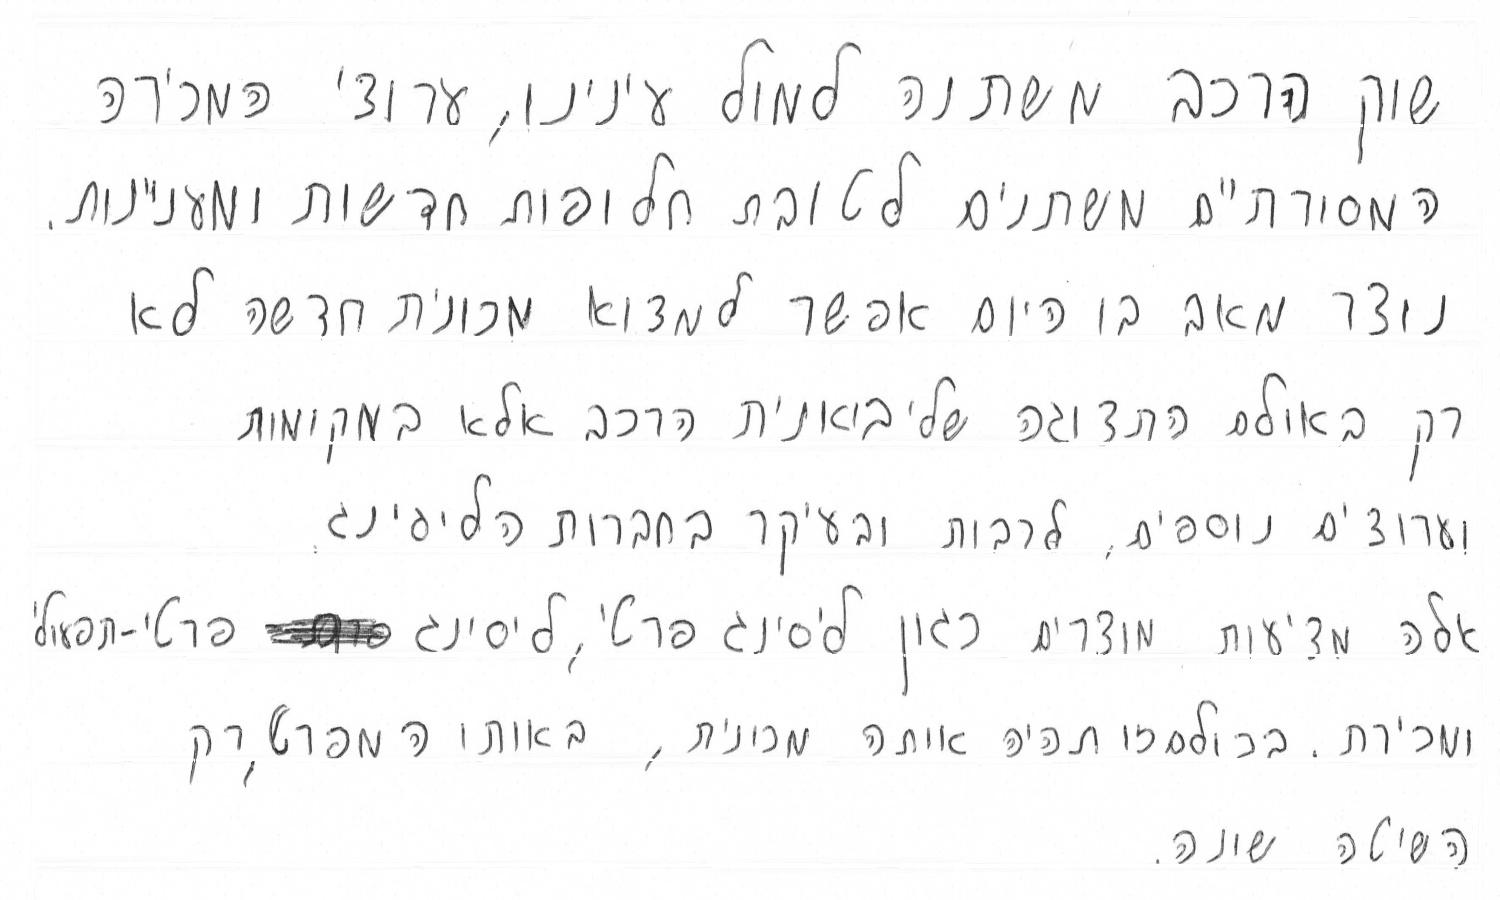 שוק הרכב משתנה למול עינינו, ערוצי המכירה
המסורתיים משתנים לטובת חלופות חדשות ומעניינות.
נוצר מאב בו היום אפשר למצוא מכונית חדשה לא
רק באולם התצוגה של יבואנית הרכב אלא במקומות
וערוצים נוספים, לרבות ובעיקר בחברות הליסינג.
אלה מציעות מוצרים כגון ליסינג פרטי, ליסינג פרטי-תפעולי
ומכירת. בכולם זו תהיה אותה מכונית, באותו המפרט, רק
השיטה שונה.